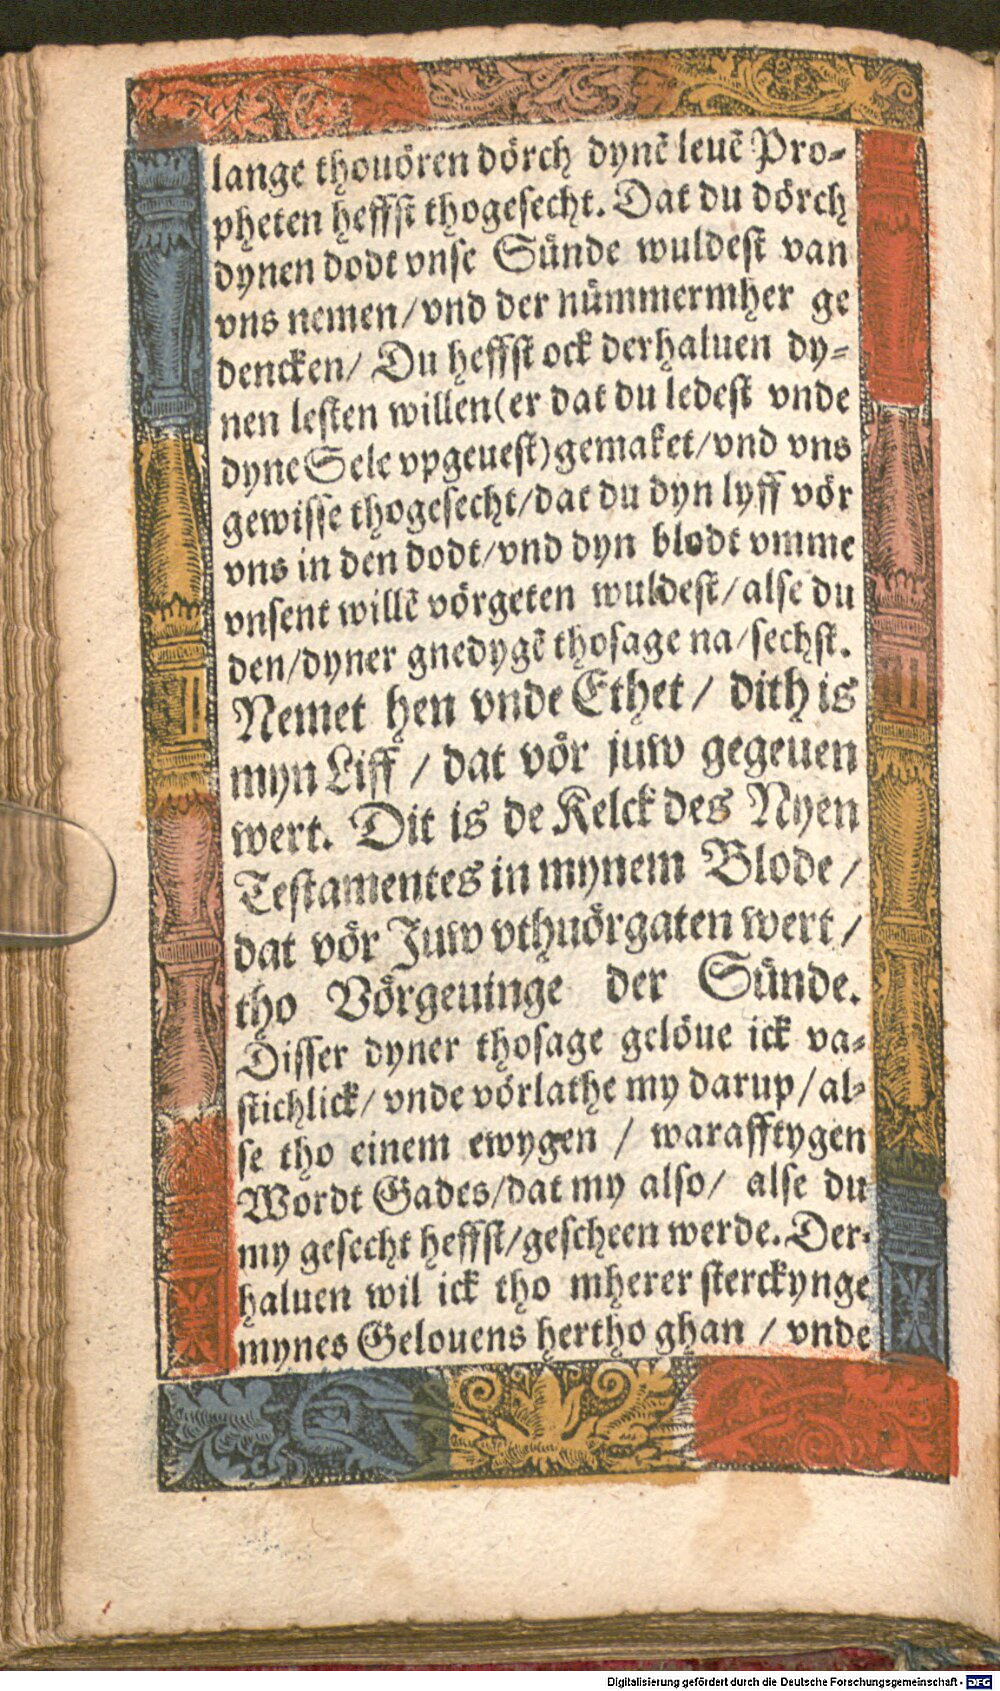 lange thouören dörch dynē leuē Pro-
pheten heffst thogesecht. Dat du dörch
dynen dodt vnse Sünde wuldest van
vns nemen/vnd der nümmermher ge
dencken/ Du heffst ock derhaluen dy-
nen lesten willen(er dat du ledest vnde
dyne Sele vpgeuest)gemaket/vnd vns
gewisse thogesecht/dat du dyn lyff vör
vns in den dodt/vnd dyn blodt vmme
vnsent willē vörgeten wuldest/alse du
den/dyner gnedygē thosage na/sechst.
Nemet hen vnde Ethet/ dith is
myn Liff / dat vör juw gegeuen
wert. Dit is de Kelck des Nyen
Testamentes in mynem Blode /
dat vör Juw vthuörgaten wert /
tho Vörgeuinge der Sünde.
Disser dyner thosage gelöue ick va-
stichlick/ vnde vörlathe my darup/al-
se tho einem ewygen / warafftygen
Wordt Gades/dat my also/ alse du
my gesecht heffst/gescheen werde. Der-
haluen wil ick tho mherer sterckynge
mynes Gelouens hertho ghan / vnde
Digitalisierung gefördert durch die Deutsche Forschungsgemeinschaft - DFG